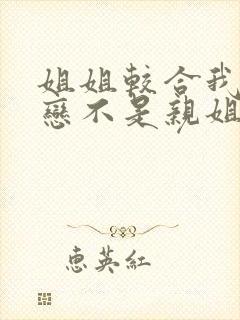 姐姐較合我
戀不是親姐
惠英紅